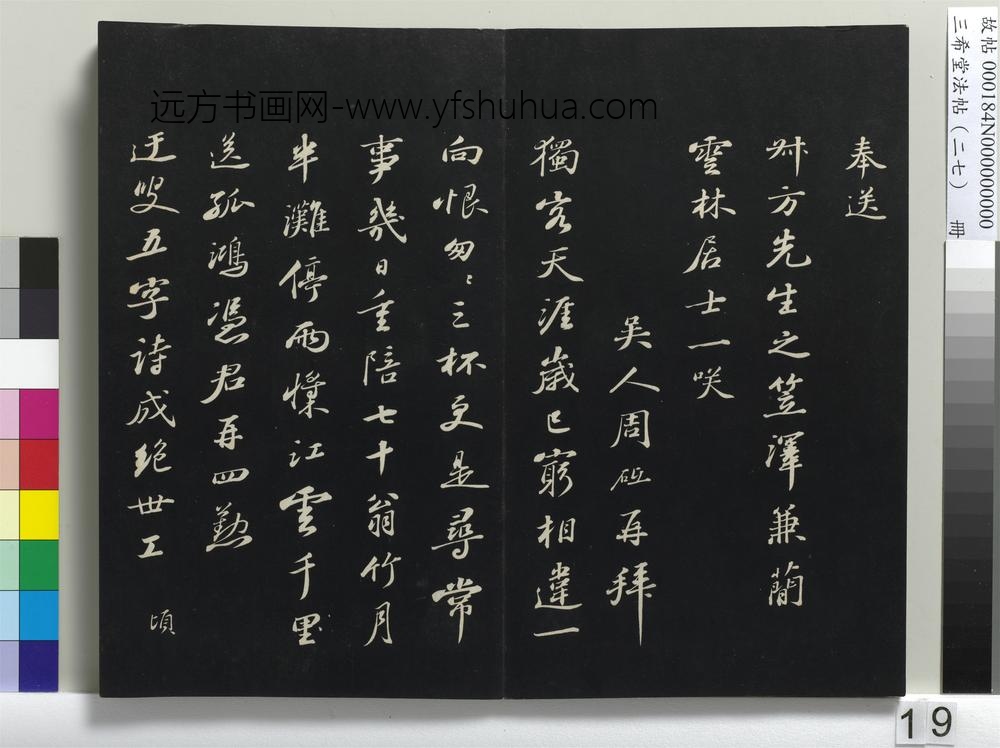 奉送
叔方先生之笠澤兼蕳
雲林居士一咲
吳人周砥再拜
獨客天涯歲已窮相違一
向恨匆〻三杯更是尋常
事幾日重陪七十翁竹月
半灘停雨江雲千里
送孤鴻憑君再四
迂叟五字詩成絕世工 頃
远方书画网-www.yfshuhua.com
故帖000184N000000000
三希堂法帖(二七) 冊
19